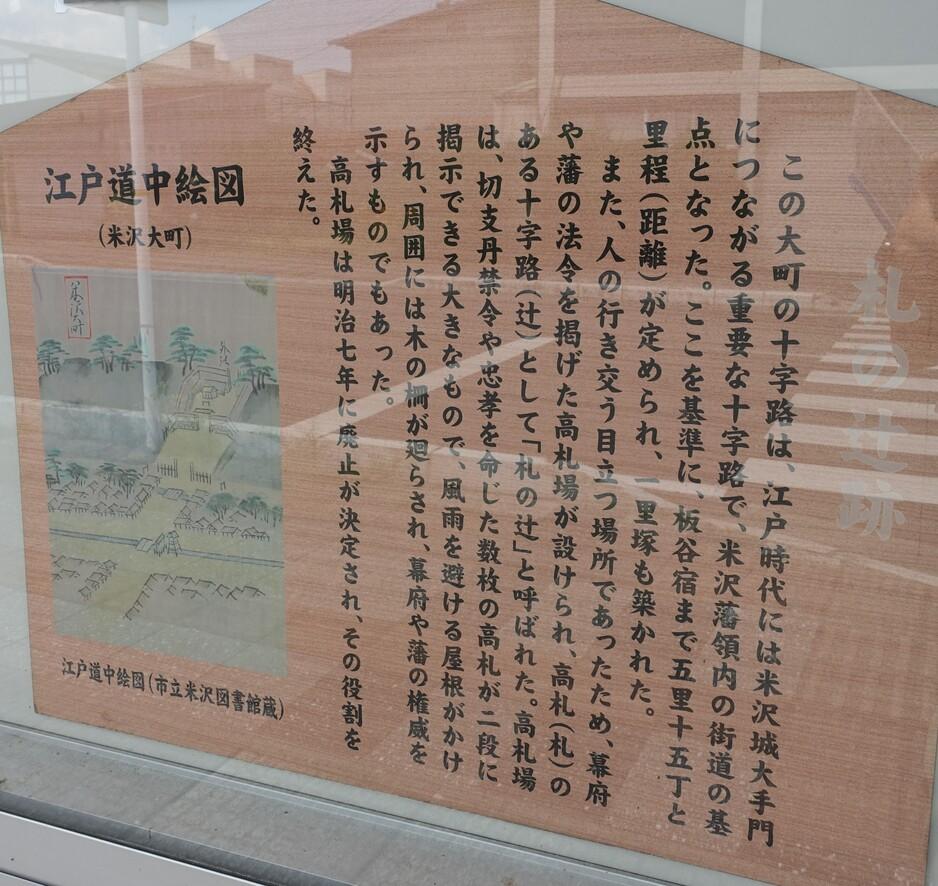 札の辻跡
この大町の十字路は、江戸時代には米沢城大手門
につながる重要な十字路で、米沢藩領内の街道の基
点となった。ここを基準に、板谷宿まで五里十五丁と
里程(距離)が定められ、一里塚も築かれた。
また、人の行き交う目立つ場所であったため、幕府
や藩の法令を掲げた高札場が設けられ、高札(札)の
ある十字路(辻)として「札の辻」と呼ばれた。高札場
は、切支丹禁令や忠孝を命じた数枚の高札が二段に
掲示できる大きなもので、風雨を避ける屋根がかけ
られ、周囲には木の柵が廻らされ、幕府や藩の権威を
示すものでもあった。
高札場は明治七年に廃止が決定され、その役割を
終えた。
江戸道中絵図
(米沢大町)
江戸道中絵図(市立米沢図書館蔵)